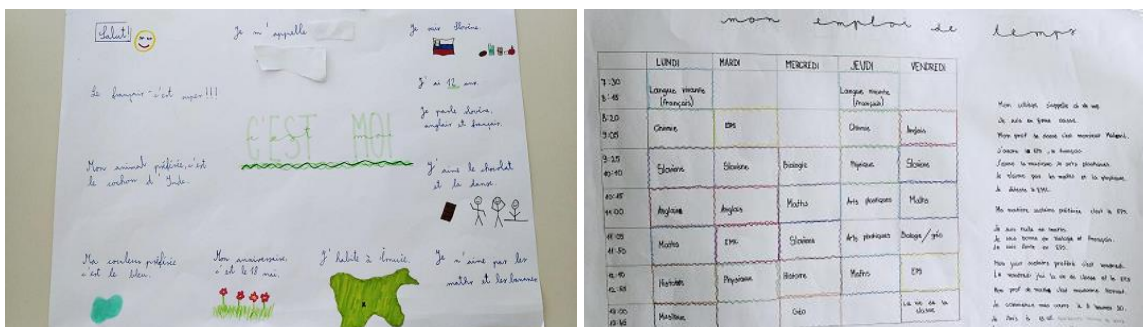 Salut!
Je m'appelle
Je suis Slovène.
Le français - c'est super!!!
J'ai 12 ans.
Je parle slovène,
anglais et français.
C'EST MOI
Mon animal préférée, c'est
le cochon d'Inde.
J'aime le chocolat
et la danse.
Ma couleur préférée
c'est le bleu.
Mon anniversaire
c'est le 18 mai.
J'habite à
Je n'aime pas les
maths et les bananes
mon emploi de temps
LUNDI MARDI MERCREDI JEUDI VENDREDI
7:30
8:15
Langue vivante
(français)
Langue vivante
(français)
8:20
9:05
Chimie EPS Chimie Anglais
9:25
10:10
Slovène Slovène Biologie Physique Slovène
10:15
11:00
Anglais Anglais Maths Arts plastiques Maths
11:05
11:50
Maths EMC Slovène Arts plastiques Biologie/géo
12:10
12:55
Histoire Physique Histoire Maths EPS
13:00
Musique Géo La vie de la
classe
Mon collège s'appelle
Je suis en
Mon prof de classe c'est monsieur
J'adore le EPS, le français.
J'aime la musique, les arts plastiques.
Je n'aime pas les maths et la physique.
Je déteste l'EMC.
Ma matière scolaire préférée c'est le EPS.
Je suis nulle en maths.
Je suis bonne en biologie et français.
Je suis forte en EPS.
Mon jour scolaire préféré c'est vendredi.
Le vendredi j'ai la vie de classe et le EPS
Mon prof de maths c'est madame
Je commence mes cours à
Je finis à